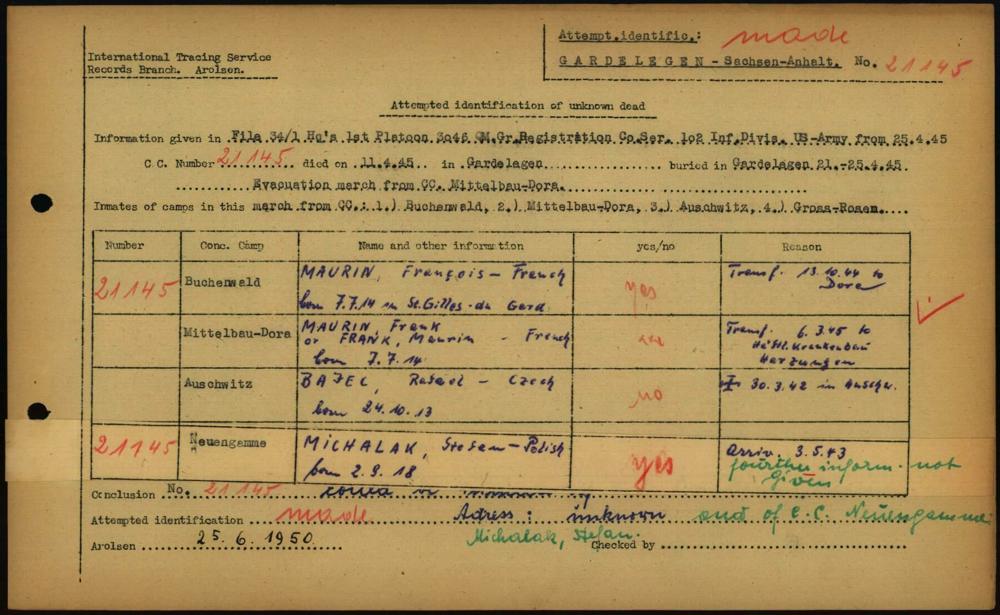 International Tracing Service
Records Branch. Arolsen.
Attempt.identific.: made
GARDELEGEN - Sachsen-Anhalt. No. 21145
Attempted identification of unknown dead
Information given in File 34/1 Hq's 1st Platoon 3046 QM.Gr.Registration Co.Ser. 102 Inf.Divis. US-Army from 25.4.45
C.C. Number 21145 died on 11.4.45 in Gardelagen buried in Gardelagen 21.-25.4.45
Evacuation march from CC. Mittelbau-Dora.
Inmates of camps in this march from CC.: 1.) Buchenwald, 2.) Mittelbau-Dora, 3.) Auschwitz, 4.) Gross-Rosen.
Number Conc. Camp Name and other information yes/no Reason
21145 Buchenwald MAURIN, François - French yes Transf. 13.10.44 to
Dora
born 7.7.14 in St.Gilles-du Gard
Mittelbau-Dora MAURIN, Frank Transf. 6.3.45 to
or FRANK, Maurin - French Häftl. Krankenbau
born 7.7.14 Harzungen
Auschwitz BAJEC, Rafael - Czech no 30.3.42 in Auschw.
born 24.10.13
21145 Neuengamme MICHALAK, Stefan - Polish yes Arriv. 3.5.43
born 2.9.18 fourther inform. not
given
Conclusion No. 21145
Attempted identification made Adress: unknown and of C.C. Neuengamme
Michalak, Stefan.
Arolsen 25.6.1950 Checked by